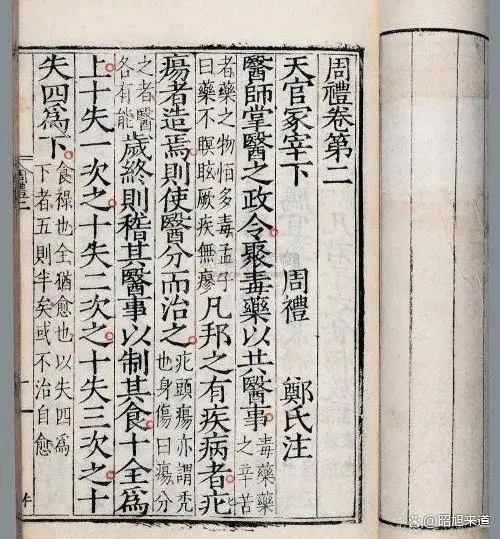 周禮卷第二
天官冢宰下 周禮 鄭氏注
醫師掌醫之政令聚毒藥以共醫事毒藥藥之辛苦
者藥之物恒多毒孟子曰藥不瞑眩厥疾無瘳凡邦之有疾病者疕
瘍者造焉則使醫分而治之疕頭瘍亦謂禿也身傷曰瘍分
之者醫各有能歲終則稽其醫事以制其食十全爲
上十失一次之十失二次之十失三次之十
失四爲下食祿也全猶愈也以失四爲下者五則半矣或不治自愈
周禮二
昭旭来道